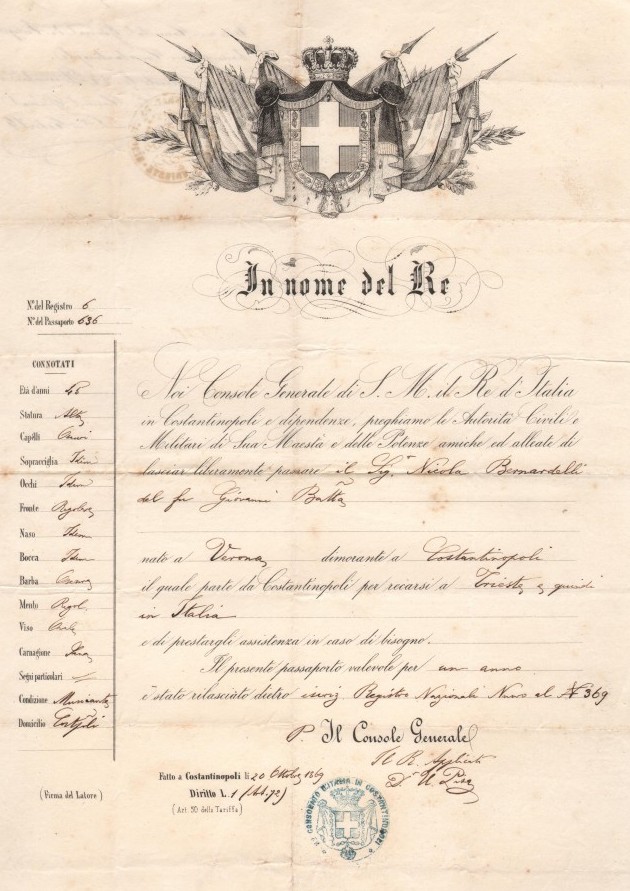 In nome del Re
No. del Registro 6
No. del Passaporto 636
CONNOTATI
Età d'anni 48
Statura Alta
Capelli
Sopracciglia Idem
Occhi Idem
Fronte Regolare
Naso Idem
Bocca Idem
Barba
Mento Regol.
Viso Ovale
Carnagione
Segni particolari /
Condizione
Domicilio
(Firma del Latore)
Noi Console Generale di S. M. il Re d'Italia
in Costantinopoli e dipendenze, preghiamo le Autorità Civili e
Militari di Sua Maestà e delle Potenze amiche ed alleate di
lasciar liberamente passare il Sig.r Nicola Bernardelli
del fu Giovanni Batta
nato a Verona dimorante a Costantinopoli
il quale parte da Costantinopoli per recarsi a Trieste e quindi
in Italia
e di prestargli assistenza in caso di bisogno.
Il presente passaporto valevole per un anno
è stato rilasciato dietro iscriz Registro Nazionali Num al No 369
P. Il Console Generale
Il R. Applicato
Dr
Fatto a Costantinopoli li 20 Ottobre 1869
Diritto L. 1 (Art. 72)
(Art. 50 della Tariffa)
CONSOLATO D'ITALIA IN COSTANTINOPOLI